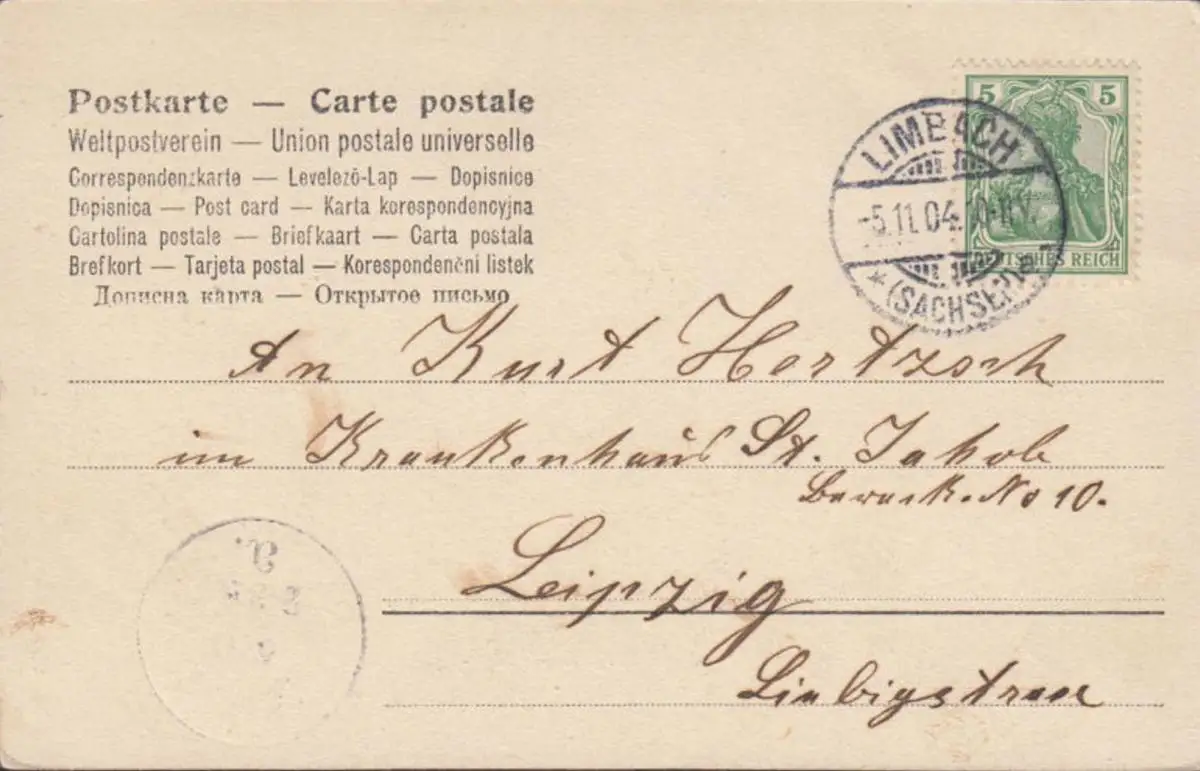 Postkarte — Carte postale
Weltpostverein — Union postale universelle
Correspondenzkarte — Levelező-Lap — Dopisnice
Dopisnica — Post card — Karta korespondencyjna
Cartolina postale — Briefkaart — Carta postala
Brefkort — Tarjeta postal — Korespondenčni listek
Дописна карта — Открытое письмо
5 5
DEUTSCHES REICH
LIMBACH
-5.11.04.10-11V.
* (SACHSEN)
An Kurt Hertzsch
im Krankenhaus St. Jakob
Barack. No 10.
Leipzig
Liebigstrasse